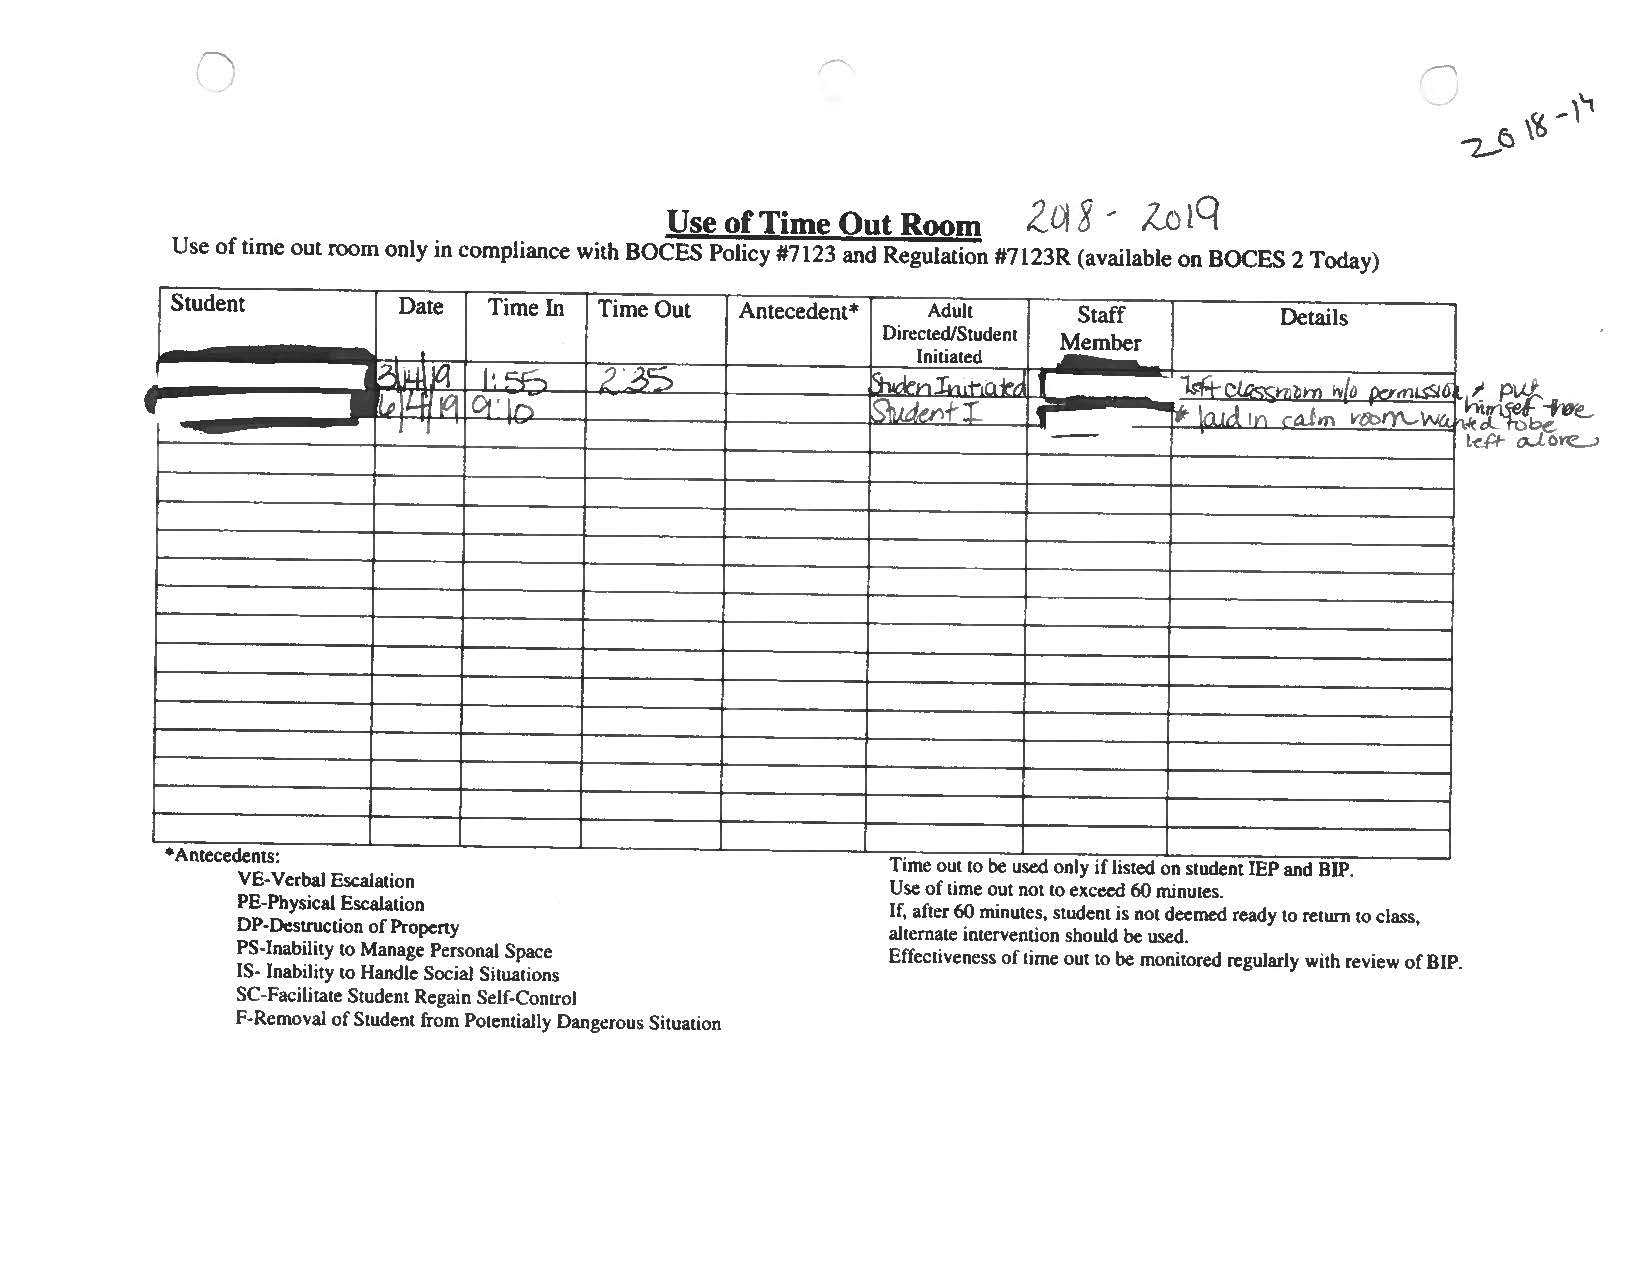 2018-19
Use of Time Out Room 2018 - 2019
Use of time out room only in compliance with BOCES Policy #7123 and Regulation #7123R (available on BOCES 2 Today)
Student Date Time In Time Out Antecedent* Adult Directed/Student Initiated Staff Member Details
3/4/19 1:55 2:35 Studen Initiated left classroom w/o permission + put himself
6/4/19 9:10 Student I * laid in calm room wanted to be left alone
*Antecedents:
VE-Verbal Escalation
PE-Physical Escalation
DP-Destruction of Property
PS-Inability to Manage Personal Space
IS- Inability to Handle Social Situations
SC-Facilitate Student Regain Self-Control
F-Removal of Student from Potentially Dangerous Situation
Time out to be used only if listed on student IEP and BIP.
Use of time out not to exceed 60 minutes.
If, after 60 minutes, student is not deemed ready to return to class,
alternate intervention should be used.
Effectiveness of time out to be monitored regularly with review of BIP.